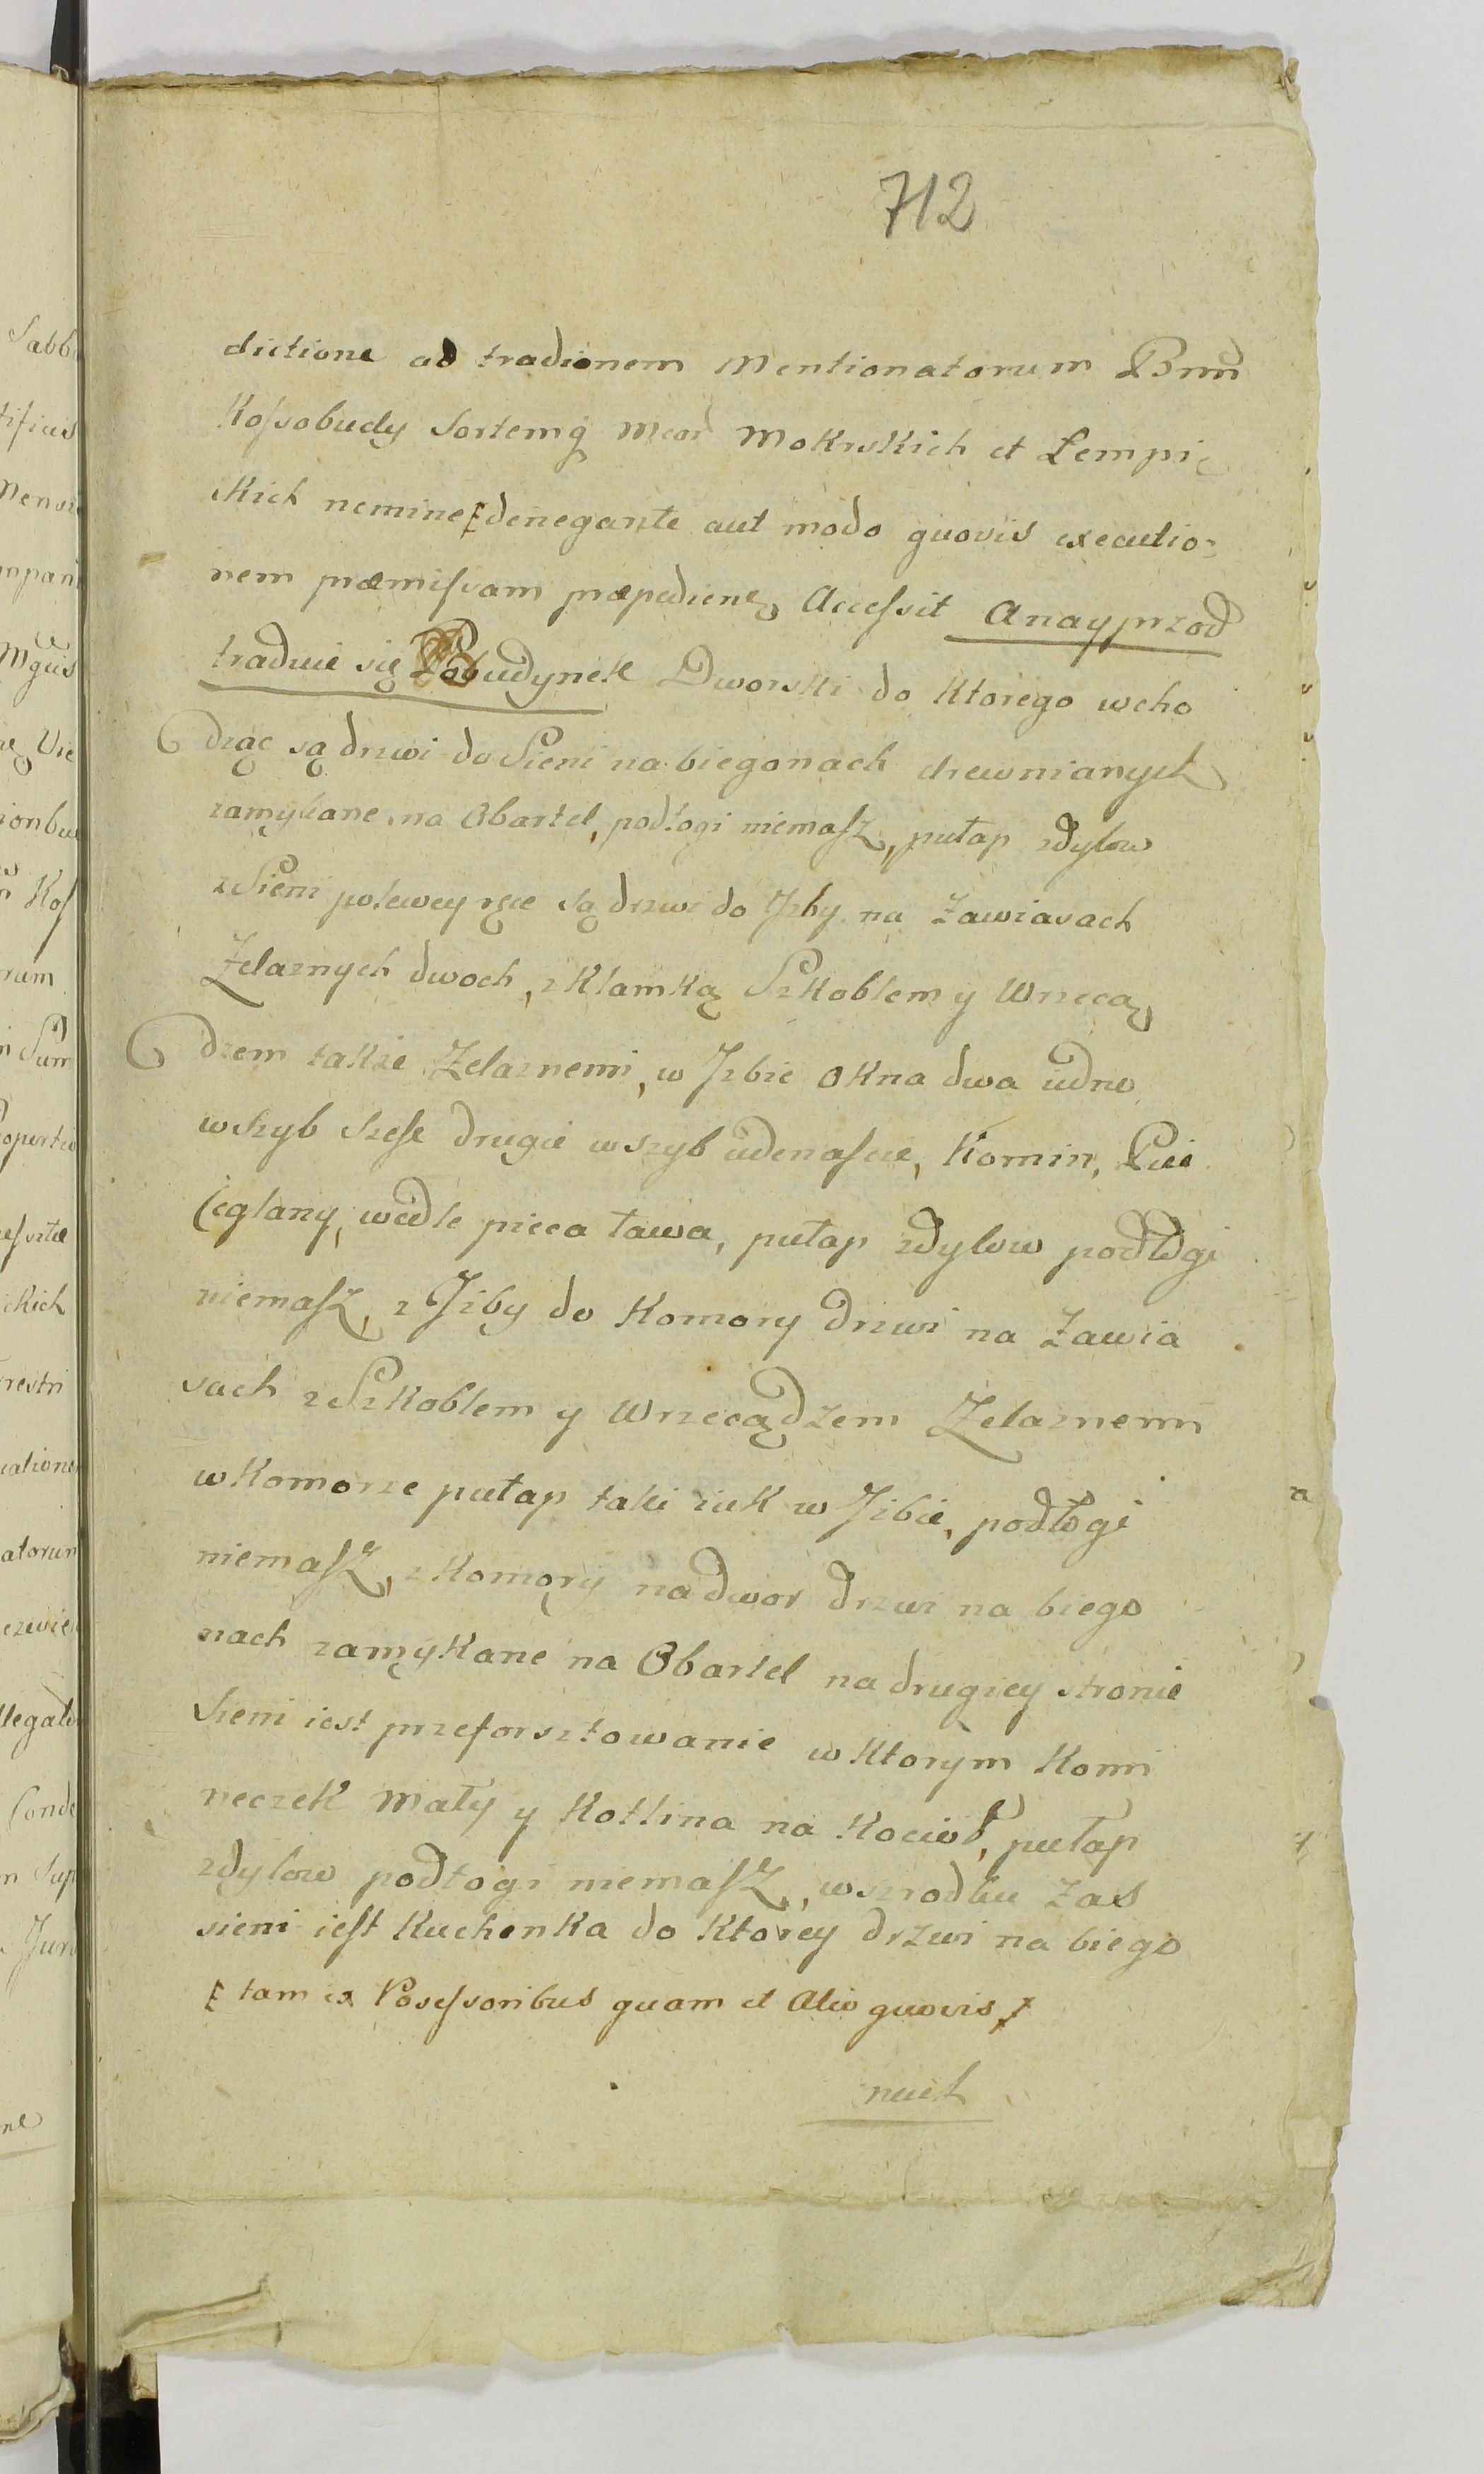 712
dictione ad tradionem Mentionatorum Bnr̃
Kossobudy Sortemq̨ Mcor̃ Mokrskich et Lempic
kich nemine ⁅ denegante aut modo quovis executio=
nem præmissam præpediene Accessit Anayprzod
traduie się Pobudynek Dworski do ktorego wcho
dząc są drzwi do Sieni na biegonach drewnianych
zamykane na Obartel, podłogi niemasz, pułap zdylow
zSieni polewey ręce są drzwi do Jzby na Zawiasach
Zelaznych dwoch, z Klamką Szkoblem y Wrzecą
dzem takze Zelaznemi, w Jzbie okna dwa iedno
wszyb szesc drugie wszyb iedenascie, Komin, Piec
Ceglany, wedle pieca ława, pułap zdylow podłogi
niemasz, z Jzby do Komory Drzwi na Zawia
sach z Szkoblem y Wrzecądzem Zelaznemi
wKomorze pułap taki iak w Jzbie, podłogi
niemasz, zkomory nadwor drzwi na biego
nach zamykane na Obartel na drugiey stronie
Sieni iest przeforsztowanie w ktorym Komi
neczek Mały y Kotlina na Kocioł, pułap
zdylow podłogi niemasz, wszrodku zas
sieni iest Kuchenka do ktorey drzwi na biego
⁅ tam ex Possessoribus quam et Alio quovis ⁆
nach